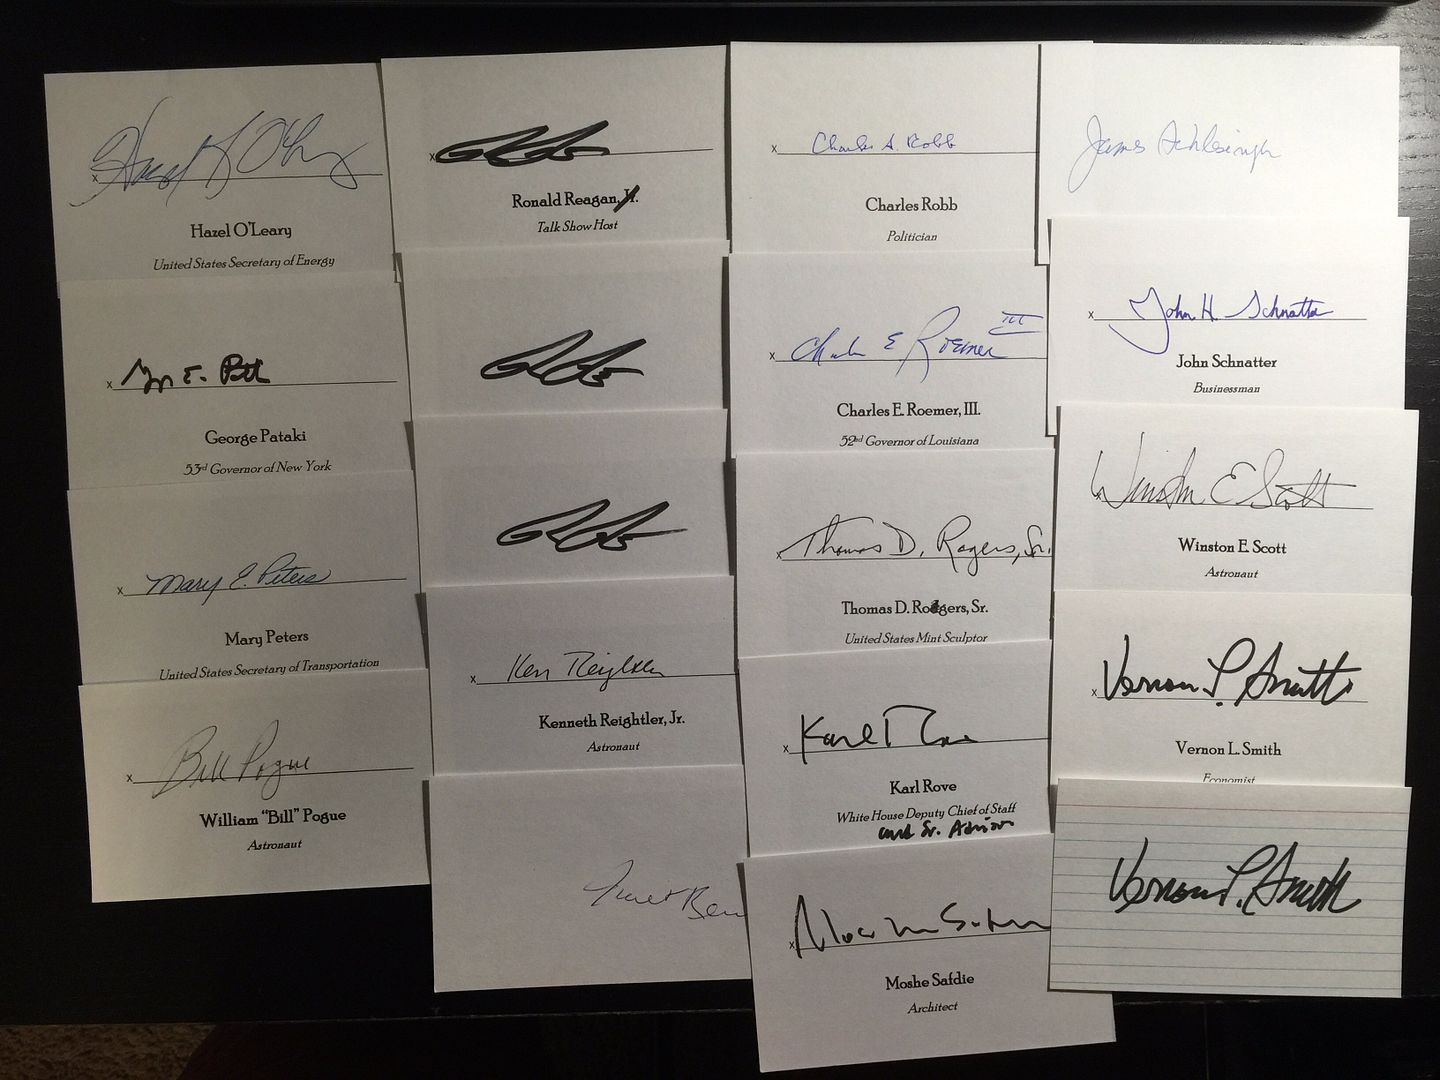 Hazel R O'Leary
x
Hazel O'Leary
United States Secretary of Energy
x
George Pataki
53rd Governor of New York
x Mary E. Peters
Mary Peters
United States Secretary of Transportation
x Bill Pogue
William "Bill" Pogue
Astronaut
x
Ronald Reagan, Jr.
Talk Show Host
x Ken Reightler
Kenneth Reightler, Jr.
Astronaut
x Charles S. Robb
Charles Robb
Politician
x Charles E Roemer III
Charles E. Roemer, III.
52nd Governor of Louisiana
x Thomas D. Rogers, Sr.
Thomas D. Rodgers, Sr.
United States Mint Sculptor
x Karl Rove
Karl Rove
White House Deputy Chief of Staff
and Sr. Advisor
x Moshe Safdie
Moshe Safdie
Architect
James Schlesinger
x John H. Schnatter
John Schnatter
Businessman
x Winston E Scott
Winston E. Scott
Astronaut
x Vernon L. Smith
Vernon L. Smith
Economist
Vernon L. Smith